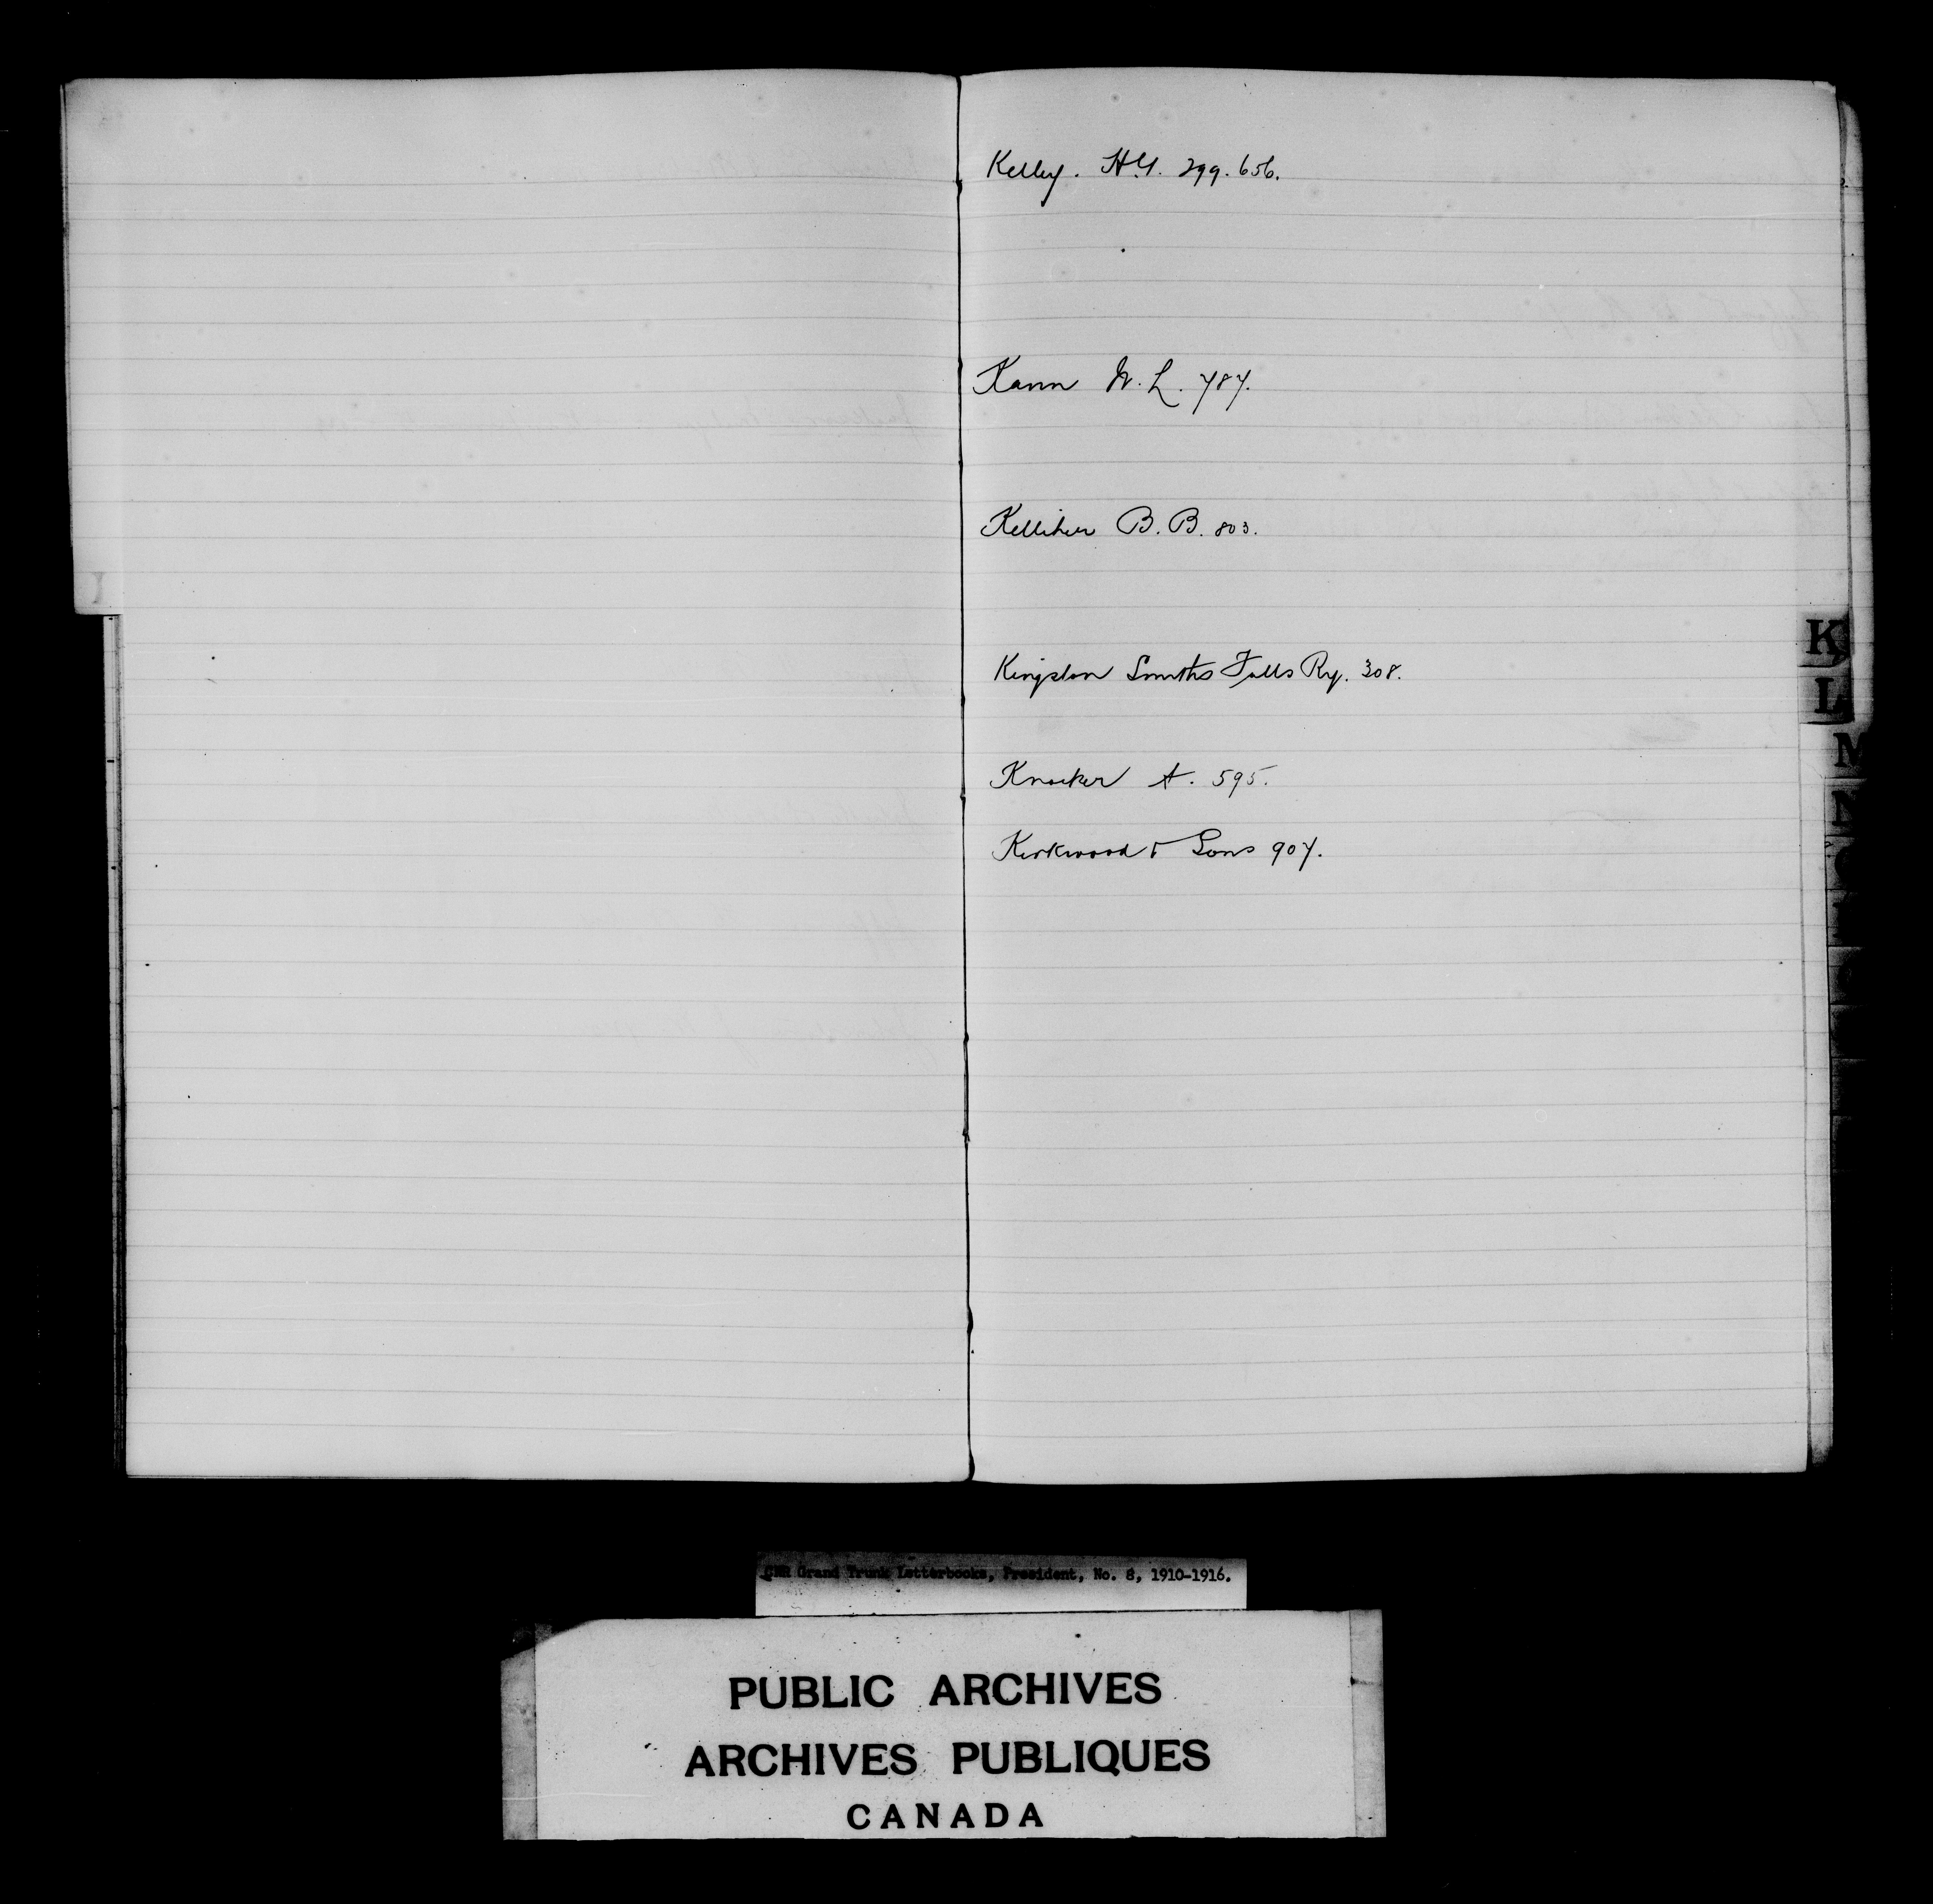 Kelley. H.G. 299. 656.
Kann W. L. 787.
Kelliher B. B. 803.
Kingston Smiths Falls Ry. 308.
Knocker A. 595.
Kirkwood & Sons 907.
K
L
M
CNR Grand Trunk Letterbooks, President, No. 8, 1910-1916.
PUBLIC ARCHIVES
ARCHIVES PUBLIQUES
CANADA